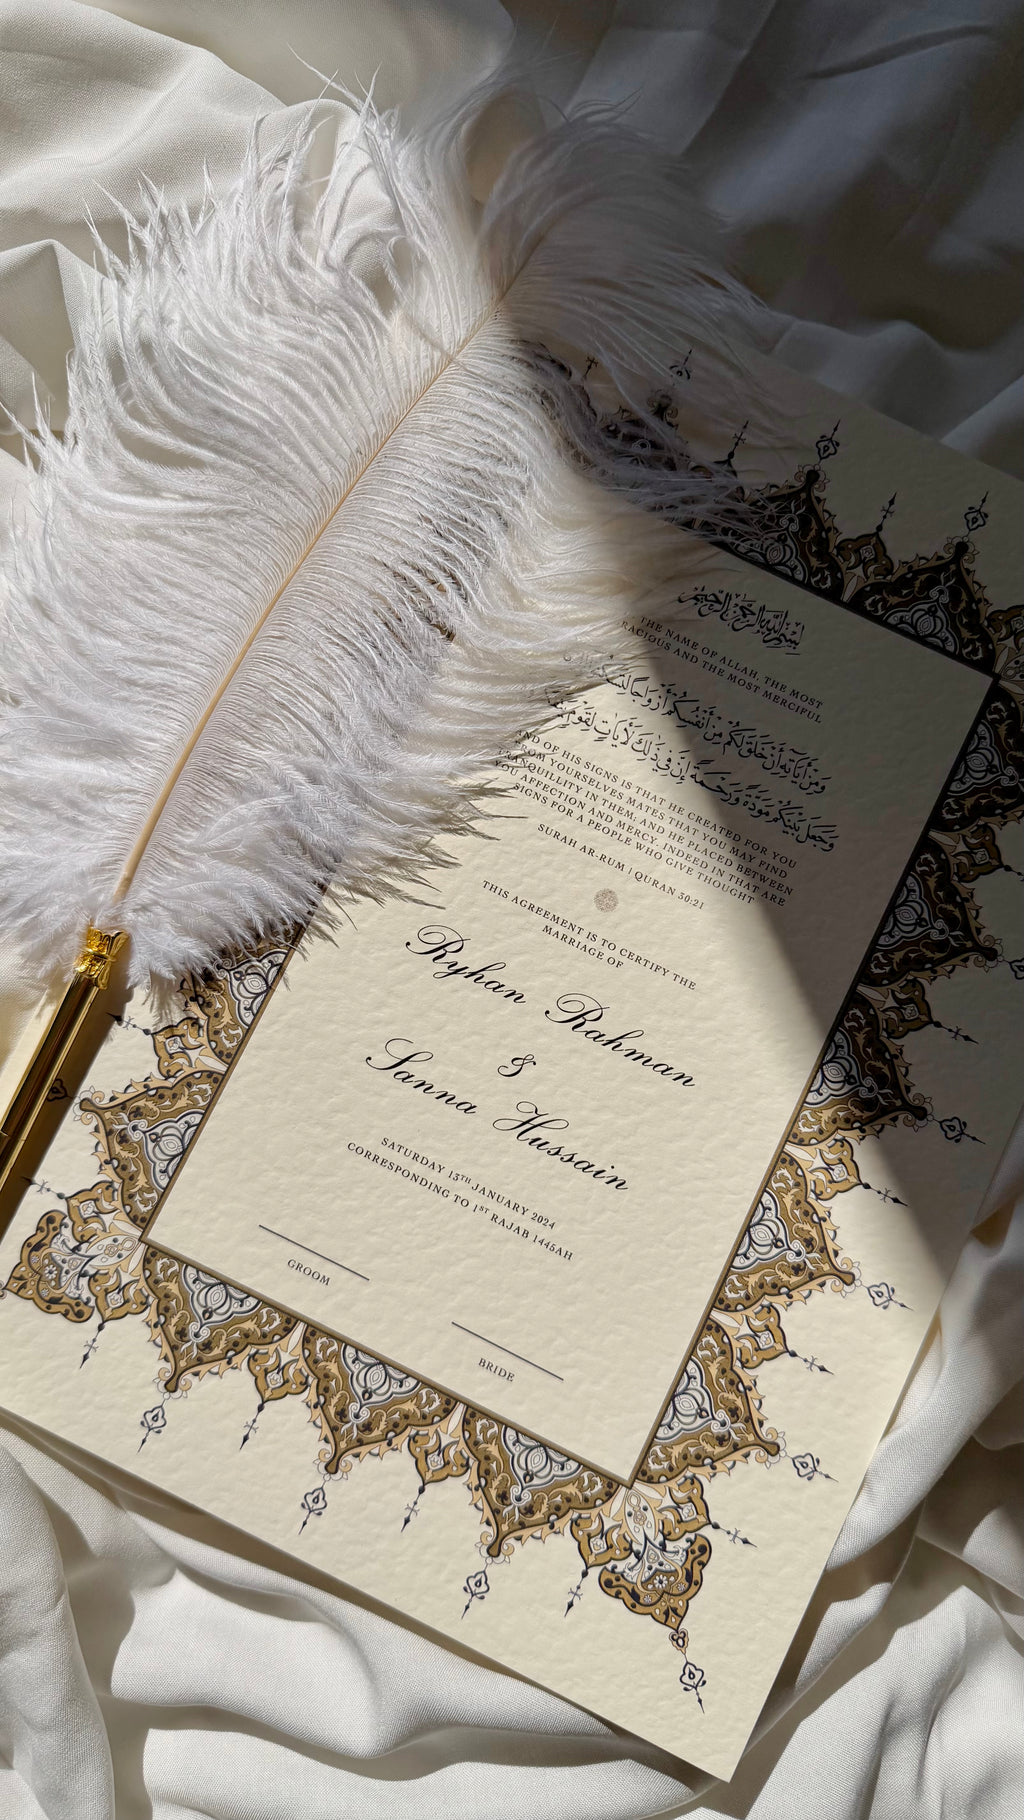 بسم الله الرحمن الرحيم
THE NAME OF ALLAH, THE MOST
GRACIOUS AND THE MOST MERCIFUL
وَمِنْ آيَاتِهِ أَنْ خَلَقَ لَكُم مِّنْ أَنفُسِكُمْ أَزْوَاجًا لِّتَسْكُنُوا
وَجَعَلَ بَيْنَكُم مَّوَدَّةً وَرَحْمَةً إِنَّ فِي ذَٰلِكَ لَآيَاتٍ لِّقَوْمٍ
AND OF HIS SIGNS IS THAT HE CREATED FOR YOU
FROM YOURSELVES MATES THAT YOU MAY FIND
TRANQUILLITY IN THEM; AND HE PLACED BETWEEN
YOU AFFECTION AND MERCY. INDEED IN THAT ARE
SIGNS FOR A PEOPLE WHO GIVE THOUGHT
SURAH AR-RUM | QURAN 30:21
THIS AGREEMENT IS TO CERTIFY THE
MARRIAGE OF
Ryhan Rahman
&
Sanna Hussain
SATURDAY 13TH JANUARY 2024
CORRESPONDING TO 1ST RAJAB 1445AH
GROOM
BRIDE